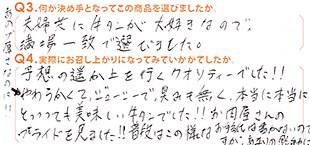 Q3.何が決め手となってこの商品を選びましたか。
夫婦共に牛タンが大好きなので、
満場一致で選びました。
Q4.実際にお召し上がりになってみていかがでしたか。
予想の遥か上を行くクオリティーでした!!
やわらかくて、ジューシーで、臭みも無く、本当に本当に
とっっっても美味しい牛タンでした!!お肉屋さんの
プライドを見ました!!普段はこの様なお手紙は書かないので
すが、あまりの感動に